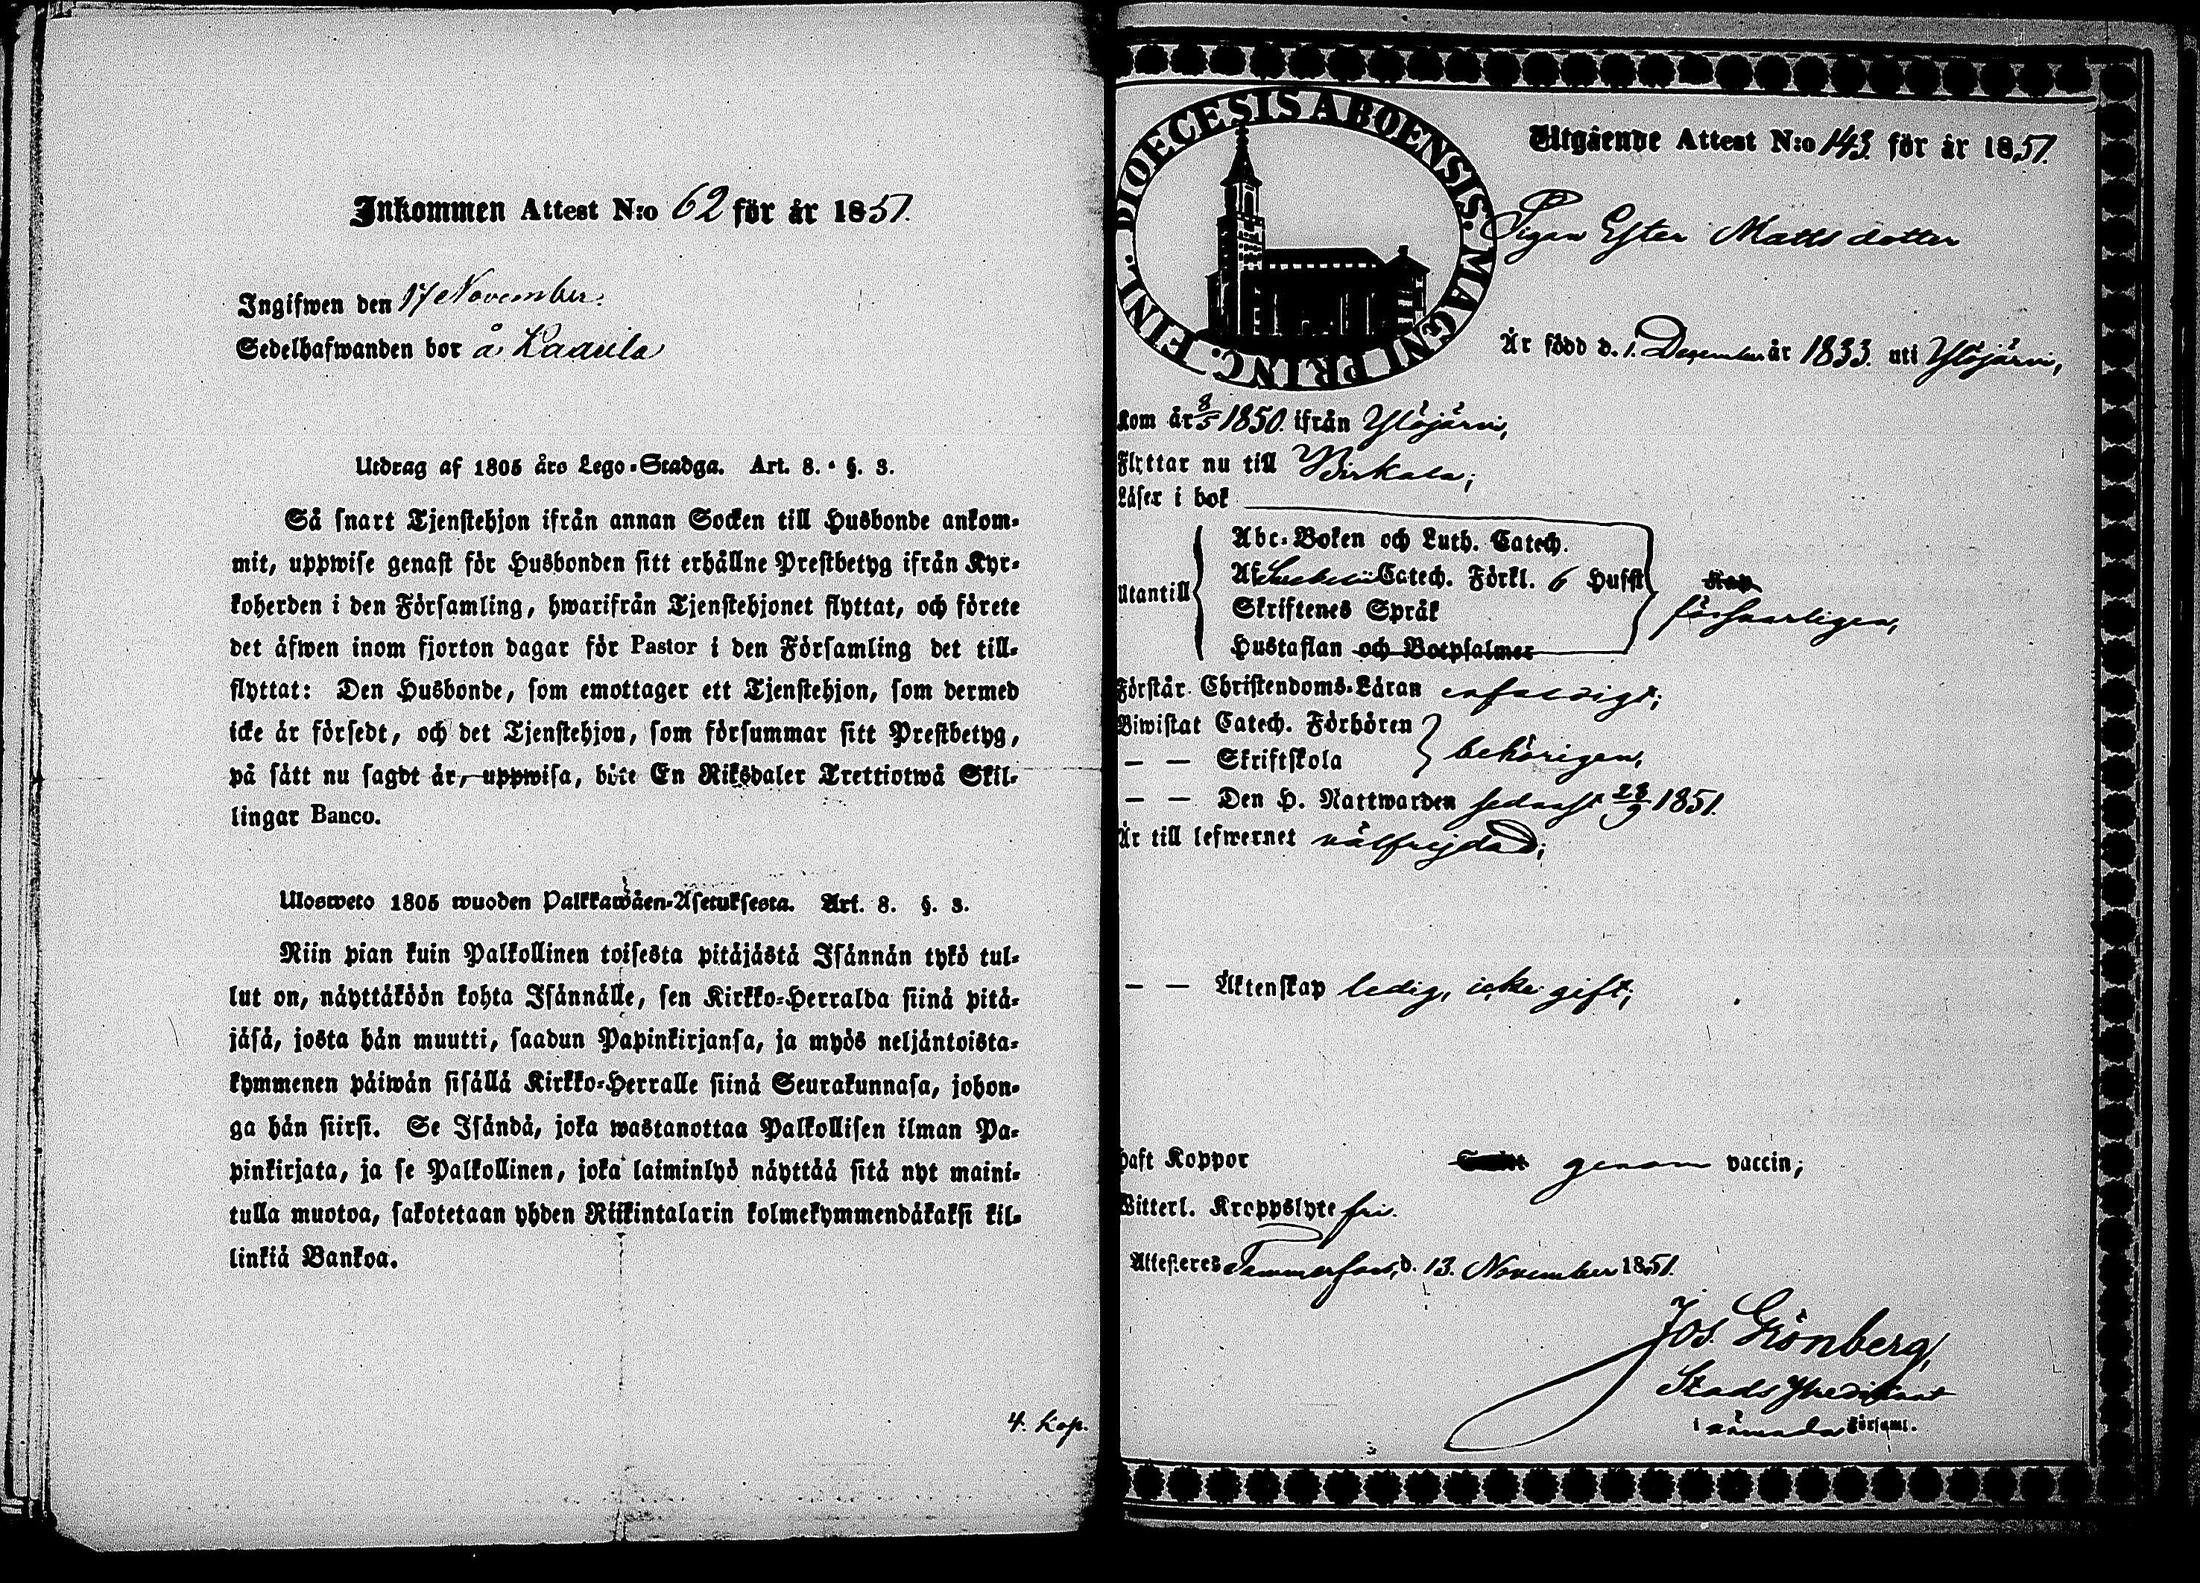 Inkommen Attest N:o 62 för år 1851.
Ingifwen den 17 November.
Sedelhafwanden bor å Kaarila
Utdrag af 1805 års Lego-Stadga. Art. 8. §. 3.
Så snart Tjenstehjon ifrån annan Socken till Husbonde ankom-
mit, uppwise genast för Husbonden sitt erhållne Prestbetyg ifrån Kyr-
koherden i den Församling, hwarifrån Tjenstehjonet flyttat, och förete
det äfwen inom fjorton dagar för Pastor i den Församling det till-
flyttat: Den Husbonde, som emottager ett Tjenstehjon, som dermed
icke är försedt, och det Tjenstehjon, som försummar sitt Prestbetyg,
på sätt nu sagdt är, uppwisa, böte En Riksdaler Trettiotwå Skil-
lingar Banco.
Ulosweto 1805 wuoden Palkkawäen-Asetuksesta. Art. 8. §. 3.
Niin pian kuin Palkollinen toisesta pitäjästä Isännän tykö tul-
lut on, näyttäköön kohta Isännälle, sen Kirkko-Herralda siinä pitä-
jäsä, josta hän muutti, saadun Papinkirjansa, ja myös neljäntoista-
kymmenen päiwän sisällä Kirkko-Herralle siinä Seurakunnasa, johon-
ga hän siirsi. Se Isändä, joka wastanottaa Palkollisen ilman Pa-
pinkirjata, ja se Palkollinen, joka laiminlyö näyttää sitä nyt maini-
tulla muotoa, sakotetaan yhden Riikintalarin kolmekymmendäkaksi kil-
linkiä Bankoa.
4. Kop.
FINL. DIOECESIS ABOENSIS. MAGNI PRINC.
Utgående Attest N:o 143. för år 1851.
Pigan Ester Mattsdotter
Är född d. 1. December år 1833. uti Ylöjärvi,
kom år 8/5 1850. ifrån Ylöjärvi,
Flyttar nu till Birkala;
Läser i bok
Utantill
Abc-Boken och Luth. Catech.
Af Svebelii Catech. Förkl. 6 Hufst
Skriftenes Språk
Hustaflan och Botpsalmer
försvarligen,
Förstår Christendoms-Läran enfaldigt;
Biwistat Catech. Förhören
— — Skriftskola
behörigen,
— — Den H. Nattwarden sednast 28/9 1851.
Är till lefwernet välfrejdad;
— — Äktenskap ledig, icke gift;
haft Koppor genom vaccin;
Witterl. Kroppslyte fri.
Attesteres Tammerfors, d. 13. November 1851.
Jos. Grönberg,
Stads Predikant
i nämnda Församl.